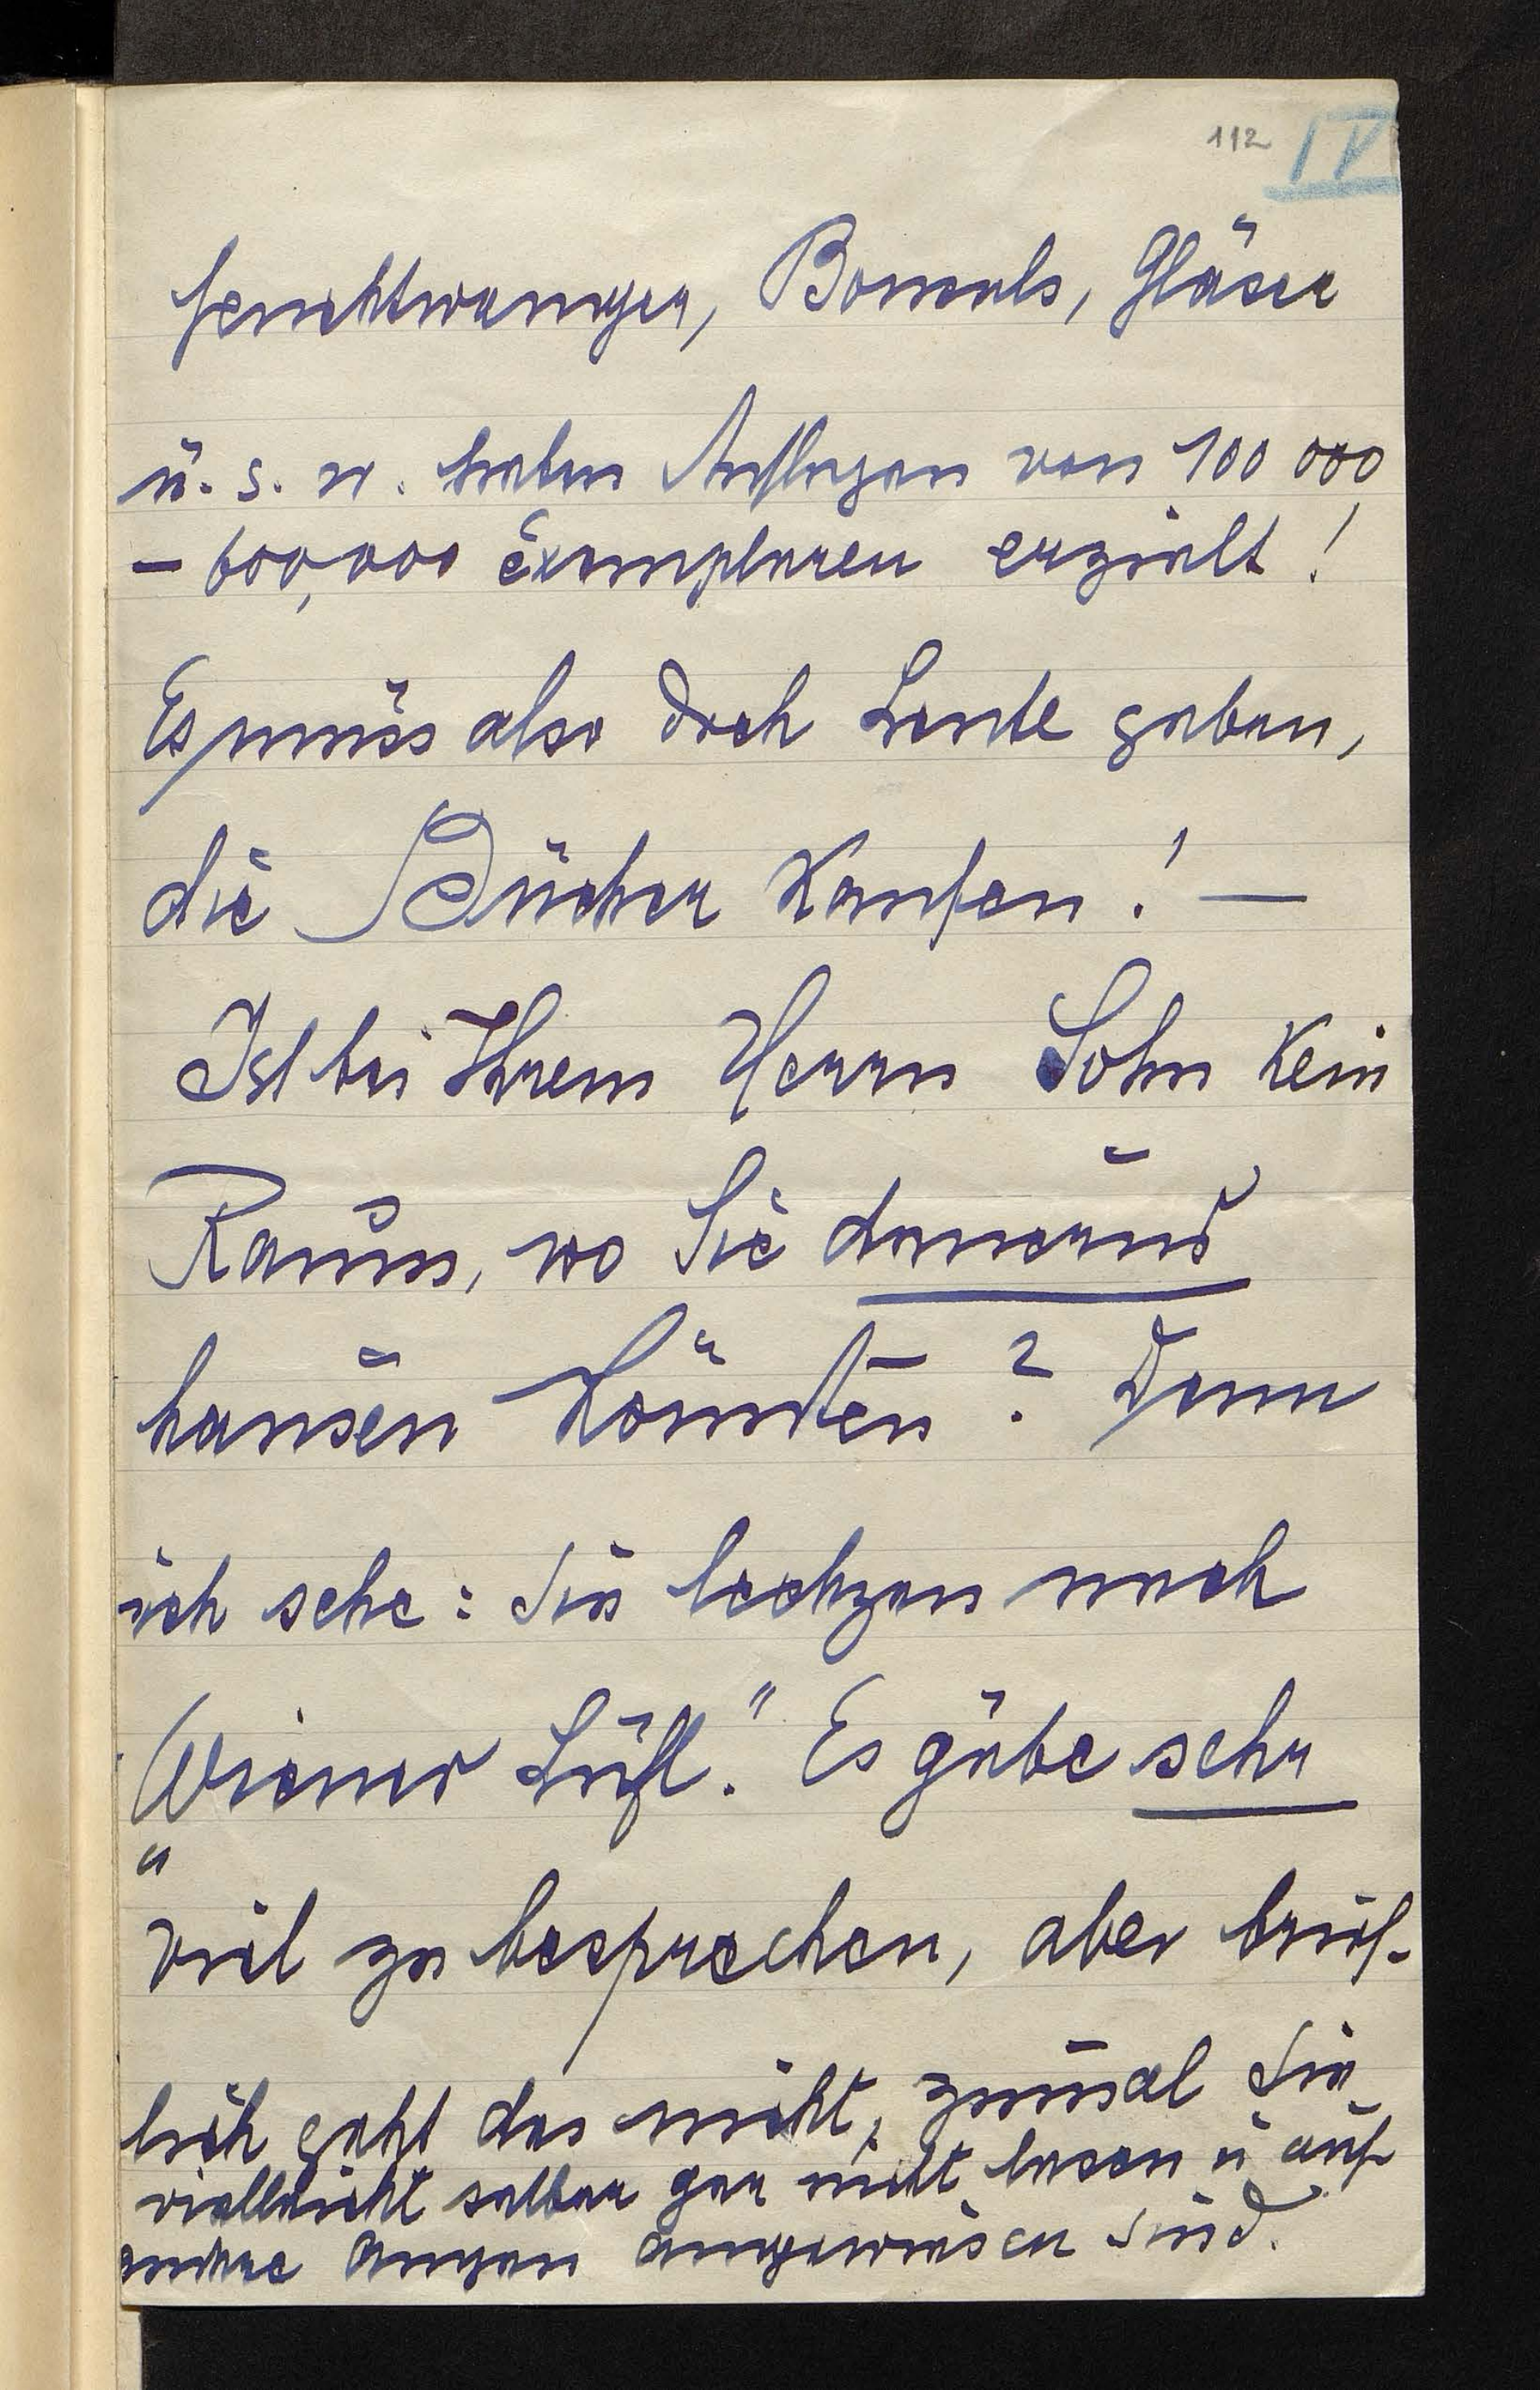 112 IV
Feuchtwanger, Bonsels, Gläser
u. s. w. haben Auflagen von 100 000
– 600,000 Exemplaren erzielt!
Es muss also doch Leute geben,
die Bücher kaufen! –
Ist bei Ihrem Herrn Sohn kein
Raum, wo Sie dauernd
hausen könnten? Denn
ich sehe: Sie lechzen nach
„Wiener Luft." Es gäbe sehr
viel zu besprechen, aber brief-
lich geht das nicht, zumal Sie
vielleicht selber gar nicht lesen u auf
andre Augen angewiesen sind.